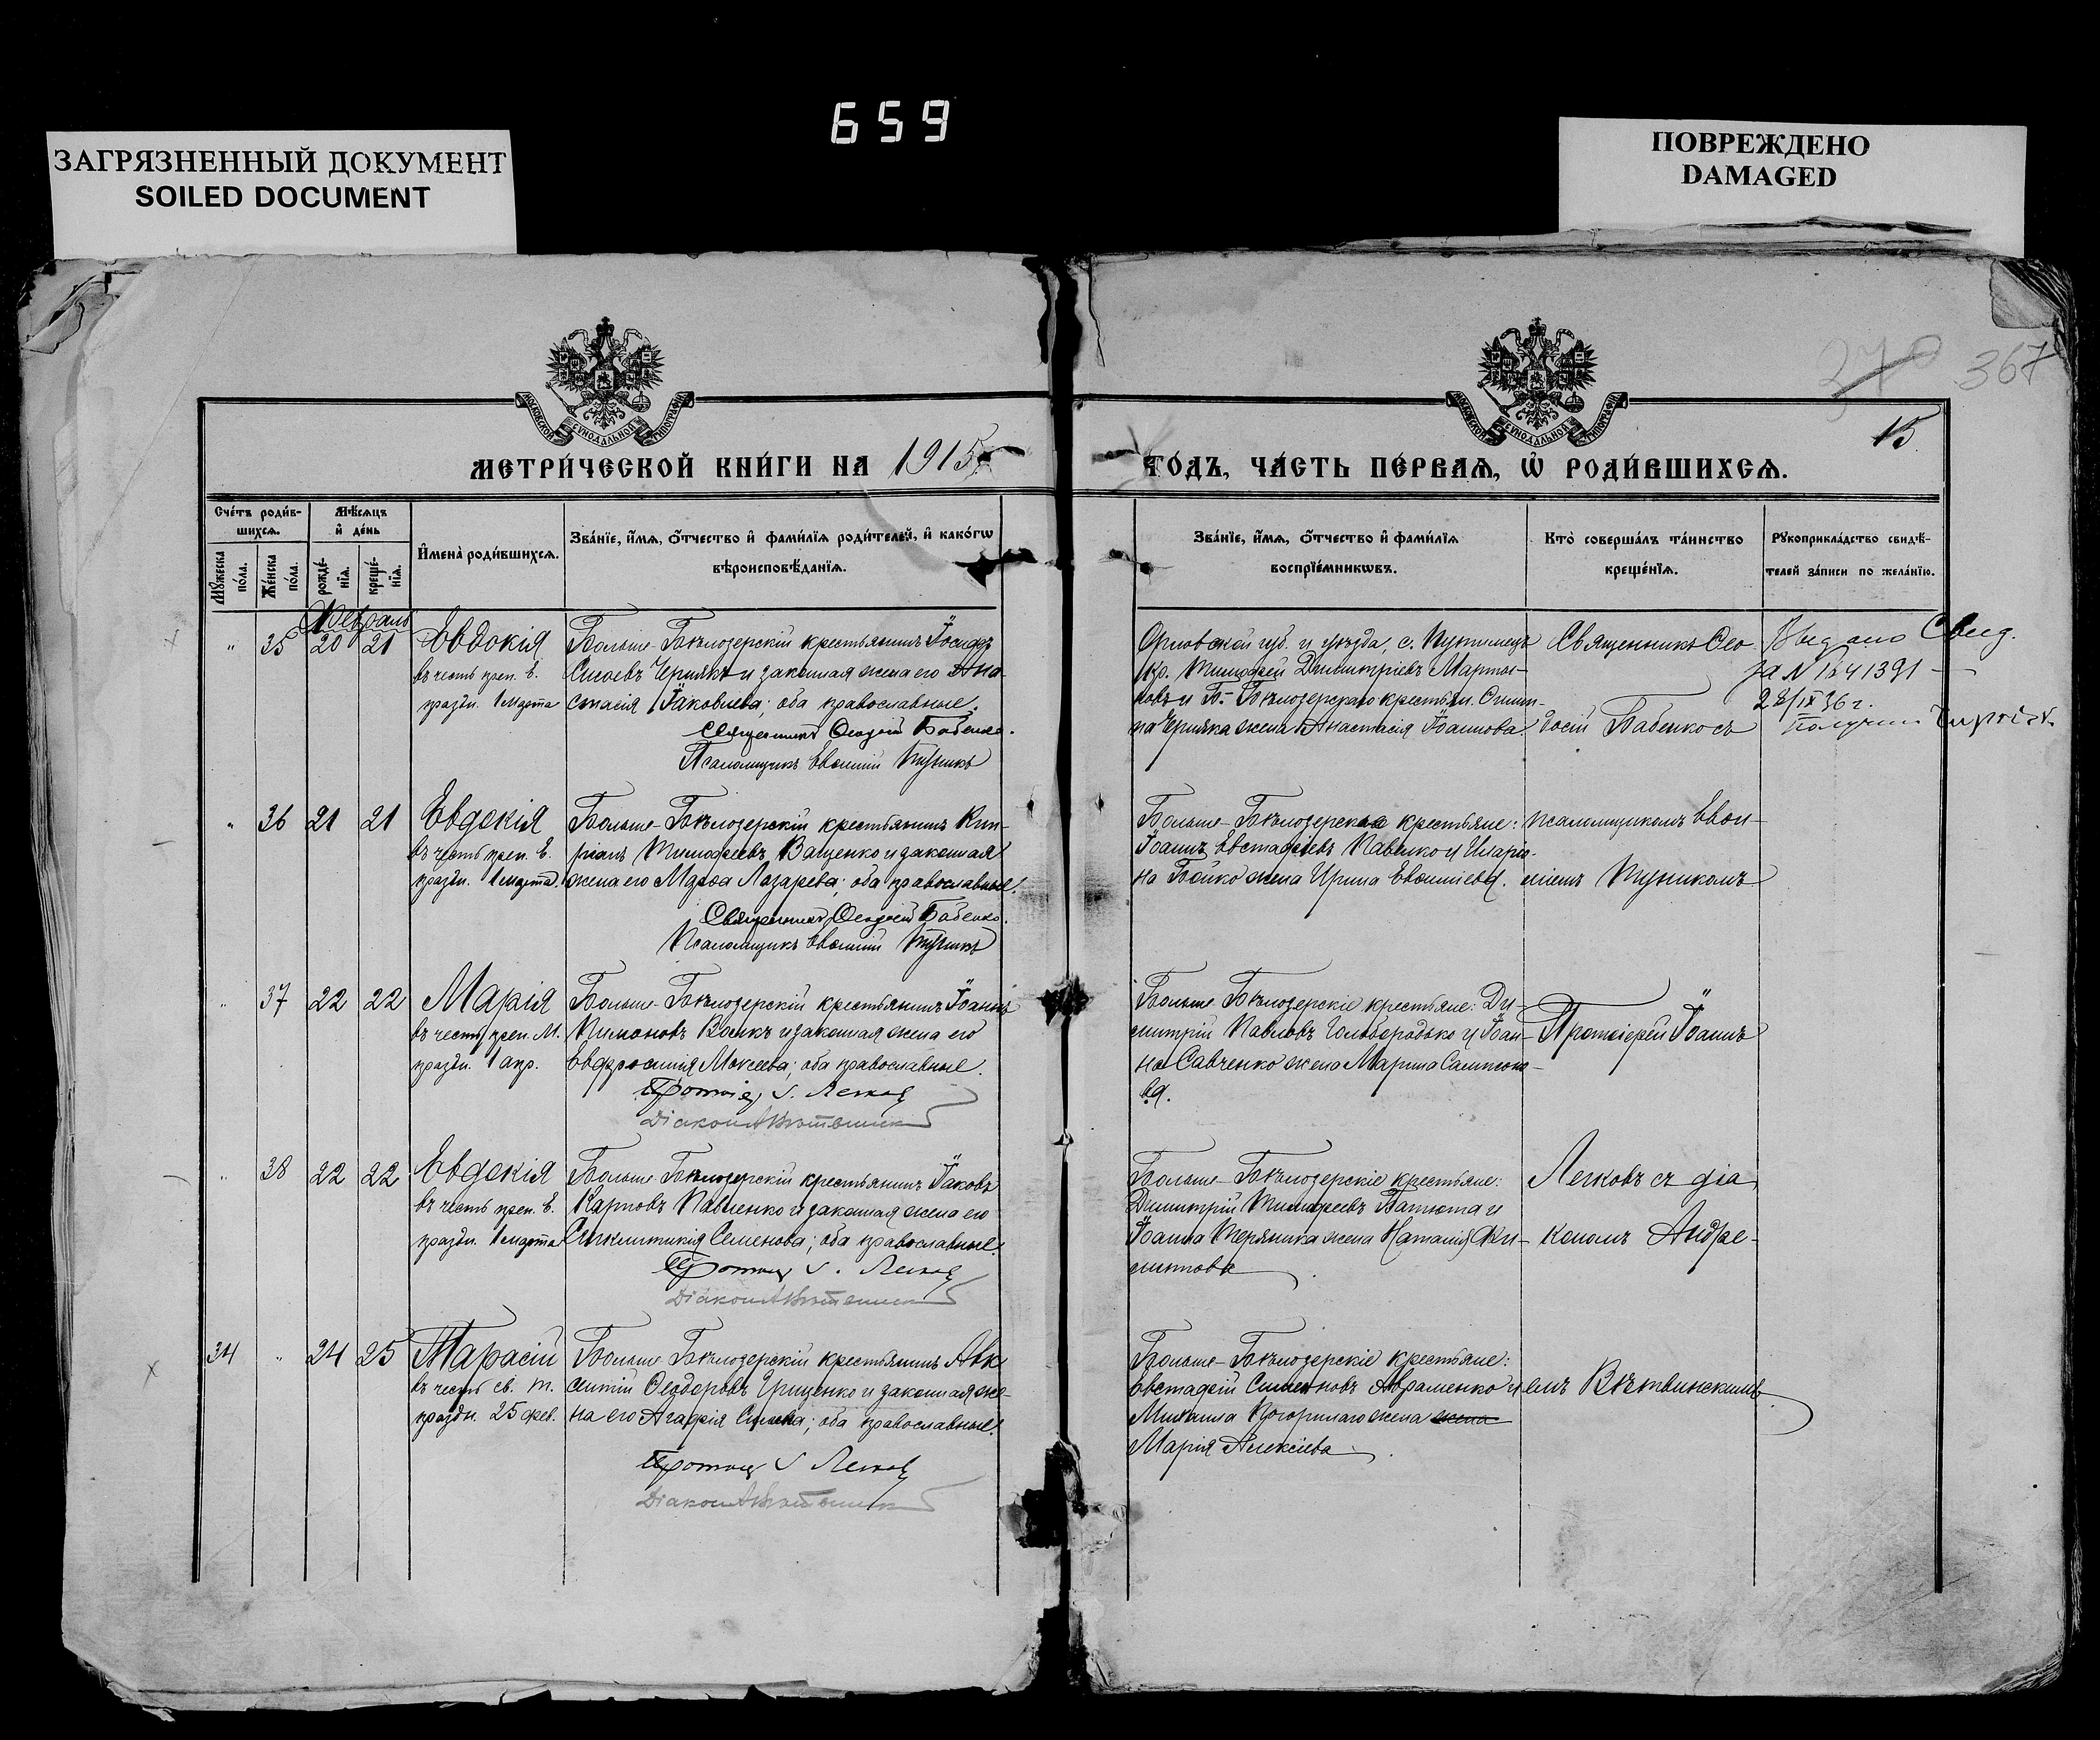 659
ЗАГРЯЗНЕННЫЙ ДОКУМЕНТ
SOILED DOCUMENT
ПОВРЕЖДЕНО
DAMAGED
367
15
МЕТРИ́ЧЕСКОЙ КНИ́ГИ НА 1915
ГО́ДЪ, ЧА́СТЬ ПЕ́РВАѦ, Ѡ҆ РОДИ́ВШИХСѦ.
Сче́тъ роди́в-
шихсѧ.
Мꙋжеска по́ла.
Же́нска по́ла.
Мѣ́сяцъ
и҆ де́нь
рожде́-
нїѧ.
креще́-
нїѧ.
И҆мена̀ роди́вшихсѧ.
Зва́нїе, и҆́мѧ, ѻ҆́тчество и҆ фами́лїѧ роди́телей, и҆ како́гѡ
вѣроисповѣ́данїѧ.
Зва́нїе, и҆́мѧ, ѻ҆́тчество и҆ фами́лїѧ
воспрїе́мникѡвъ.
Кто̀ соверша́лъ та́инство
креще́нїѧ.
Рꙋкоприкла́дство свидѣ́-
телей за́писи по жела́нїю.
Февраль
" 35 20 21 Евдокія
въ честь преп. Е.
праздн. 1 марта
Больше-Бѣлозерскій крестьянинъ Іосифъ
Сисоевъ Чернякъ и законная жена его Ана-
стасія Іаковлева; оба православные.
Священникъ Ѳеодосій Бабенко.
Псаломщикъ Евѳимій Пузикъ
Орловской губ. и уѣзда, с.
кр. Тимоѳей Димитріевъ Марты-
новъ и Б.-Бѣлозерскаго крестьян.
Черняка жена Анастасія Іоаннова
Священникъ Ѳео-
досій Бабенко съ
Выдано Свид.
за N 1641391
28/IX 36 г.
Получил
" 36 21 21 Евдокія
въ честь преп. Е.
праздн. 1 марта.
Больше-Бѣлозерскій крестьянинъ Кип-
ріанъ Тимоѳеевъ Ващенко и законная
жена его Марѳа Лазарева; оба православные.
Священникъ Ѳеодосій Бабенко.
Псаломщикъ Евѳимій Пузикъ
Больше-Бѣлозерскіе крестьяне:
Іоаннъ Евстафіевъ Павленко и Иларіо-
на Бойко жена Ирина Евѳиміева.
псаломщикомъ Евѳи-
міемъ Пузикомъ
" 37 22 22 Марія
въ честь преп. М.
праздн. 1 апр.
Больше-Бѣлозерскій крестьянинъ Іоаннъ
Пимоновъ Волкъ и законная жена его
Евфросинія Мокеева; оба православные.
Протоіер. І. Легковъ
Діаконъ А Вѣтвинскій
Больше-Бѣлозерскіе крестьяне: Ди-
митрій Павловъ Голобородько и Іоан-
на Савченко жена Марина Сампсоно-
ва.
Протоіерей Іоаннъ
" 38 22 22 Евдокія
въ честь преп. Е.
праздн. 1 марта
Больше-Бѣлозерскій крестьянинъ Іаковъ
Карповъ Павленко и законная жена его
Синклитикія Семенова; оба православные.
Протоіер. І. Легковъ
Діаконъ А Вѣтвинскій
Больше-Бѣлозерскіе крестьяне:
Димитрій Тимоѳеевъ Батюта и
Іоанна жена Наталія Ѳки-
листова
Легковъ съ діа-
кономъ Андре-
34 " 24 25 Тарасій
въ честь св. Т.
праздн. 25 фев.
Больше-Бѣлозерскій крестьянинъ Авк-
сентій Ѳеодоровъ Грищенко и законная же-
на его Агафія Силина; оба православные.
Протоіер. І. Легковъ
Діаконъ А Вѣтвинскій
Больше-Бѣлозерскіе крестьяне:
Евстафій Симеоновъ Авраменко и
Михаила Погорилаго жена жена
Марія Алексіева
емъ Вѣтвинскимъ.